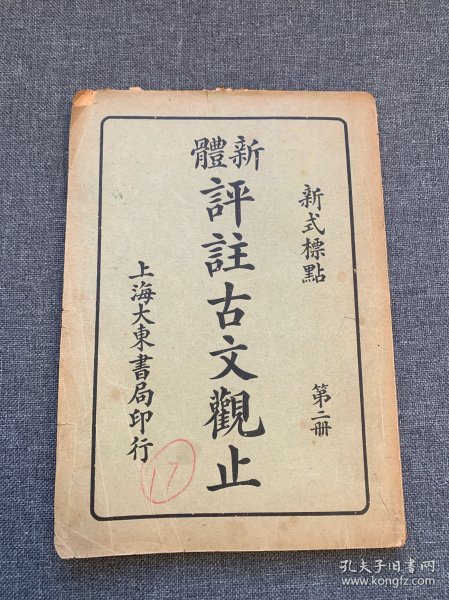 新式標點
第二冊
新體
評註古文觀止
上海大東書局印行
17
孔夫子旧书网
www.kongfz.com